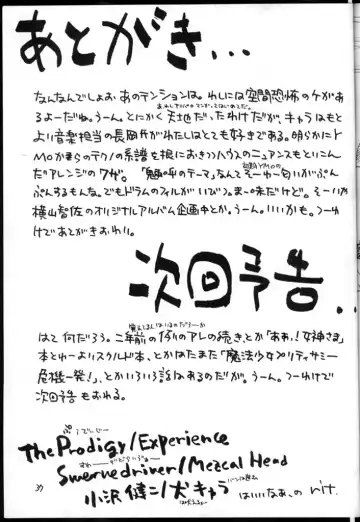 あとがき...
なんなんでしょお あのテンションは。わしには空間恐怖のケがあ
るよーだね。うーん。とにかく大地だ、たわけだが、キャラはもと
より音楽担当の長岡氏がわたしはとても好きである。明らかにY
MOから のテクノの系譜を根におきつつハウスのニュアンスもといこん
だアレンジの「ワザ」。「魅 のテーマ」なんてそーゆー匂いがぷん
ぷんするもんな。でもドラムのフィルがいびつ。ま一味だけど。そーいや
横山智佐のオリジナルアルバム企画中とか。うーん。いいかも。つーわ
けであとがきおわり。
次回予告..
はて何だろう。二年前の のアレの続きとか「ああっ!女神さま」
本とゆーよりスクルド本、とかはたまた「魔法少女プリティサミー
危機一発!」、とかいろいろ話はあるのだが。うーん。つーわけで
次回予告もおわる。
The Prodigy/Experience
Swervedriver/Mezcal Head
小沢健二/犬キャラ
はいいなぁ、の
39